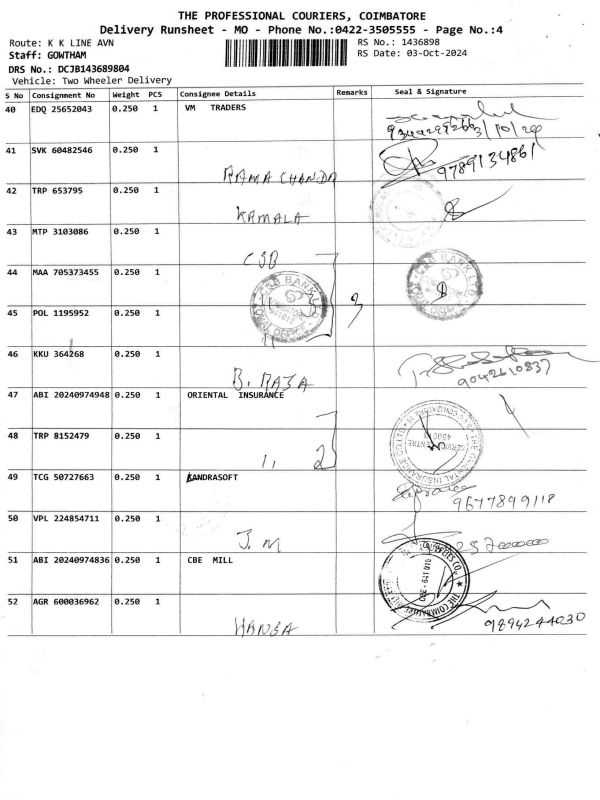 THE PROFESSIONAL COURIERS, COIMBATORE
Delivery Runsheet - MO - Phone No.:0422-3505555 - Page No.:4
Route: K K LINE AVN RS No.: 1436898
Staff: GOWTHAM RS Date: 03-Oct-2024
DRS No.: DCJB143689804
Vehicle: Two Wheeler Delivery
S No Consignment No Weight PCS Consignee Details Remarks Seal & Signature
40 EDQ 25652043 0.250 1 VM TRADERS
41 SVK 60482546 0.250 1 9789134861
RAMA CHANDA
42 TRP 653795 0.250 1
KAMALA
43 MTP 3103086 0.250 1
CSB
44 MAA 705373455 0.250 1
3
45 POL 1195952 0.250 1
46 KKU 364268 0.250 1
B. RAJA 9042610837
47 ABI 20240974948 0.250 1 ORIENTAL INSURANCE
48 TRP 8152479 0.250 1
2
49 TCG 50727663 0.250 1 LANDRASOFT
9677899118
50 VPL 224854711 0.250 1
J.M
51 ABI 20240974836 0.250 1 CBE MILL
52 AGR 600036962 0.250 1
HANSA 9894244030